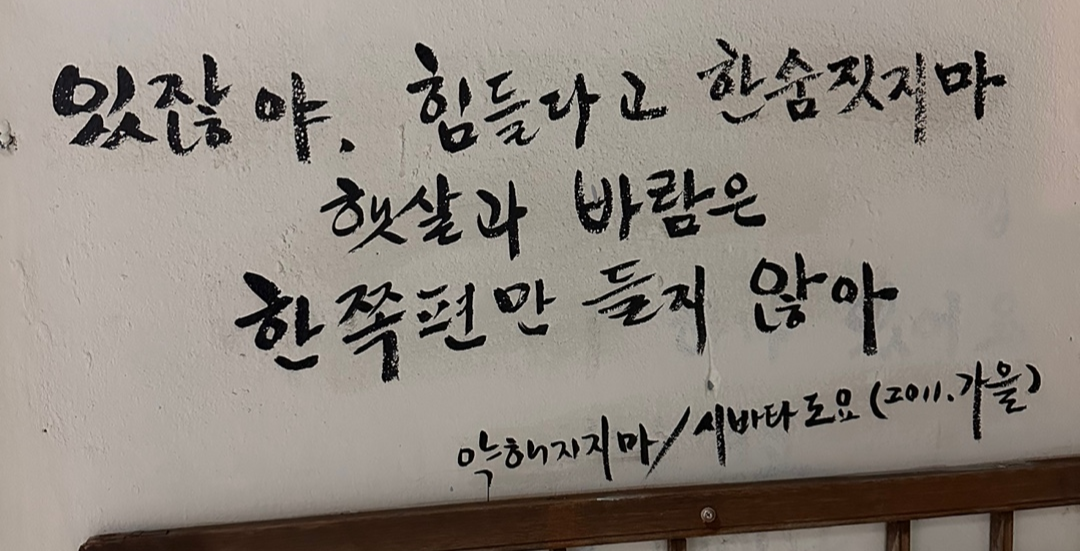 있잖아. 힘들다고 한숨짓지마
햇살과 바람은
한쪽편만 들지 않아
약해지지마/시바타도요(2011.가을)